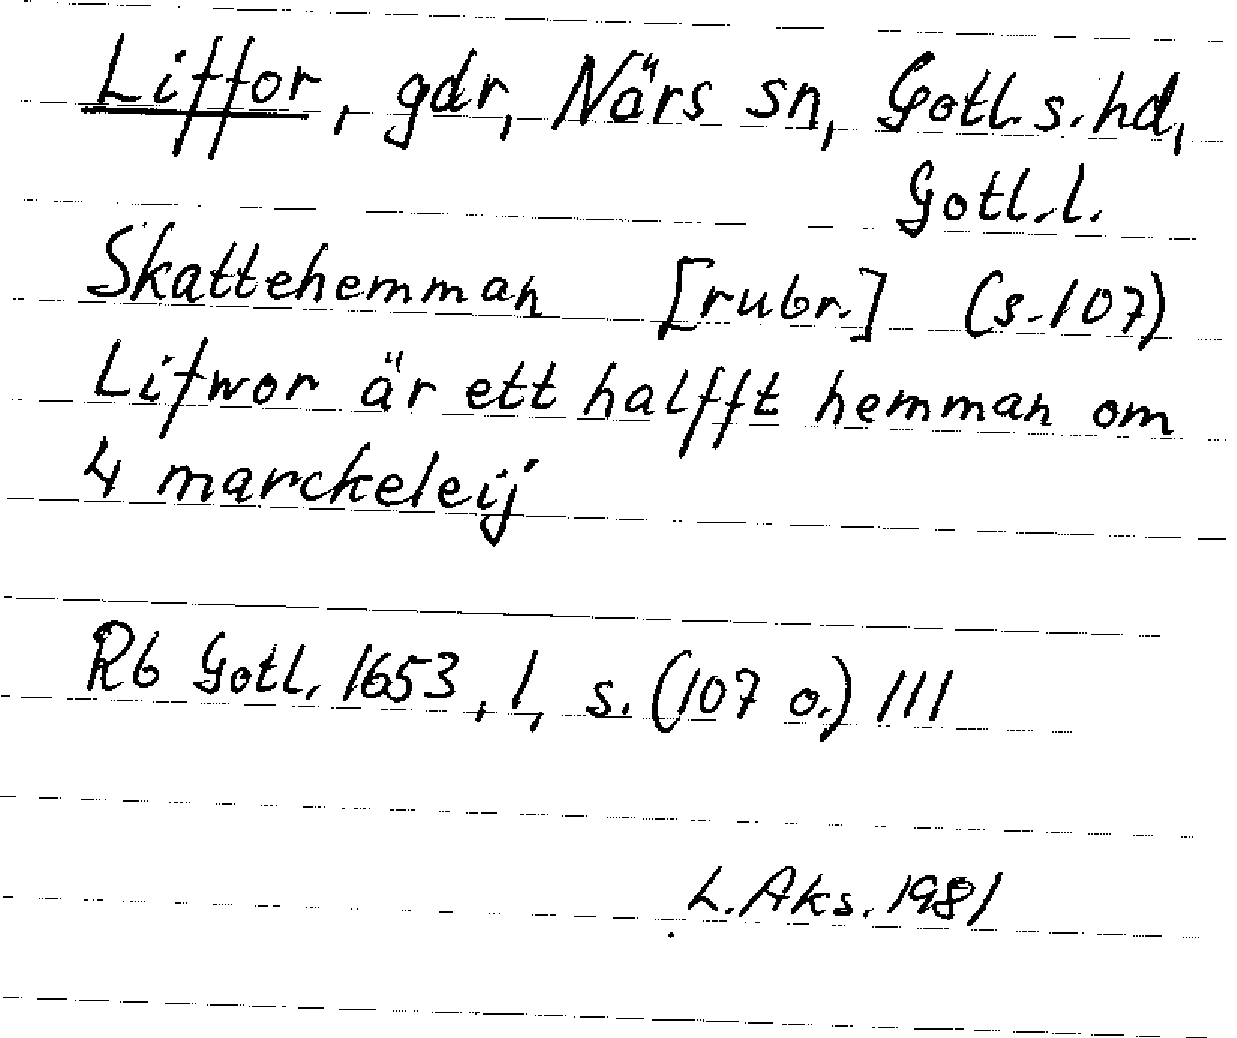 Liffor, gdr, Närs sn, Gotl. s. hd,
Gotl. l.
Skattehemman [rubr.] (s. 107)
Lifwor är ett halfft hemman om
4 marckeleij
Rb Gotl. 1653, 1, s. (107 o.) 111
L. Aks. 1981